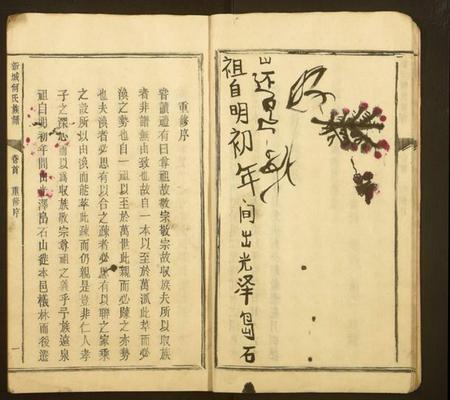 祖自明初年间出光泽岛石
重修序
嘗讀禮有曰尊祖故敬宗敬宗故收族夫所以收族
者非譜無由致也故自一本以至於萬派此萃而必
渙之勢也自一祖以至於萬世此親而必疎之亦勢
也夫渙者必思有以合之疎者必思有以聯之家乘
之設所以由渙而能萃此疎而仍親是豈非仁人孝
子之深心而以為收族敬宗尊祖之義乎予族遠泉
祖自明初年間由光澤島石山徙本邑橫林而後遷
新城何氏族譜 卷首 重修序 一